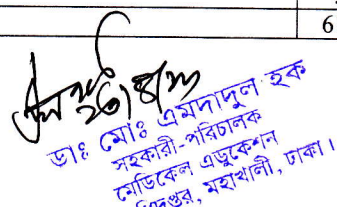 6
ডাঃ মোঃ এমদাদুল হক
সহকারী-পরিচালক
মেডিকেল এডুকেশন
মহাখালী, ঢাকা।